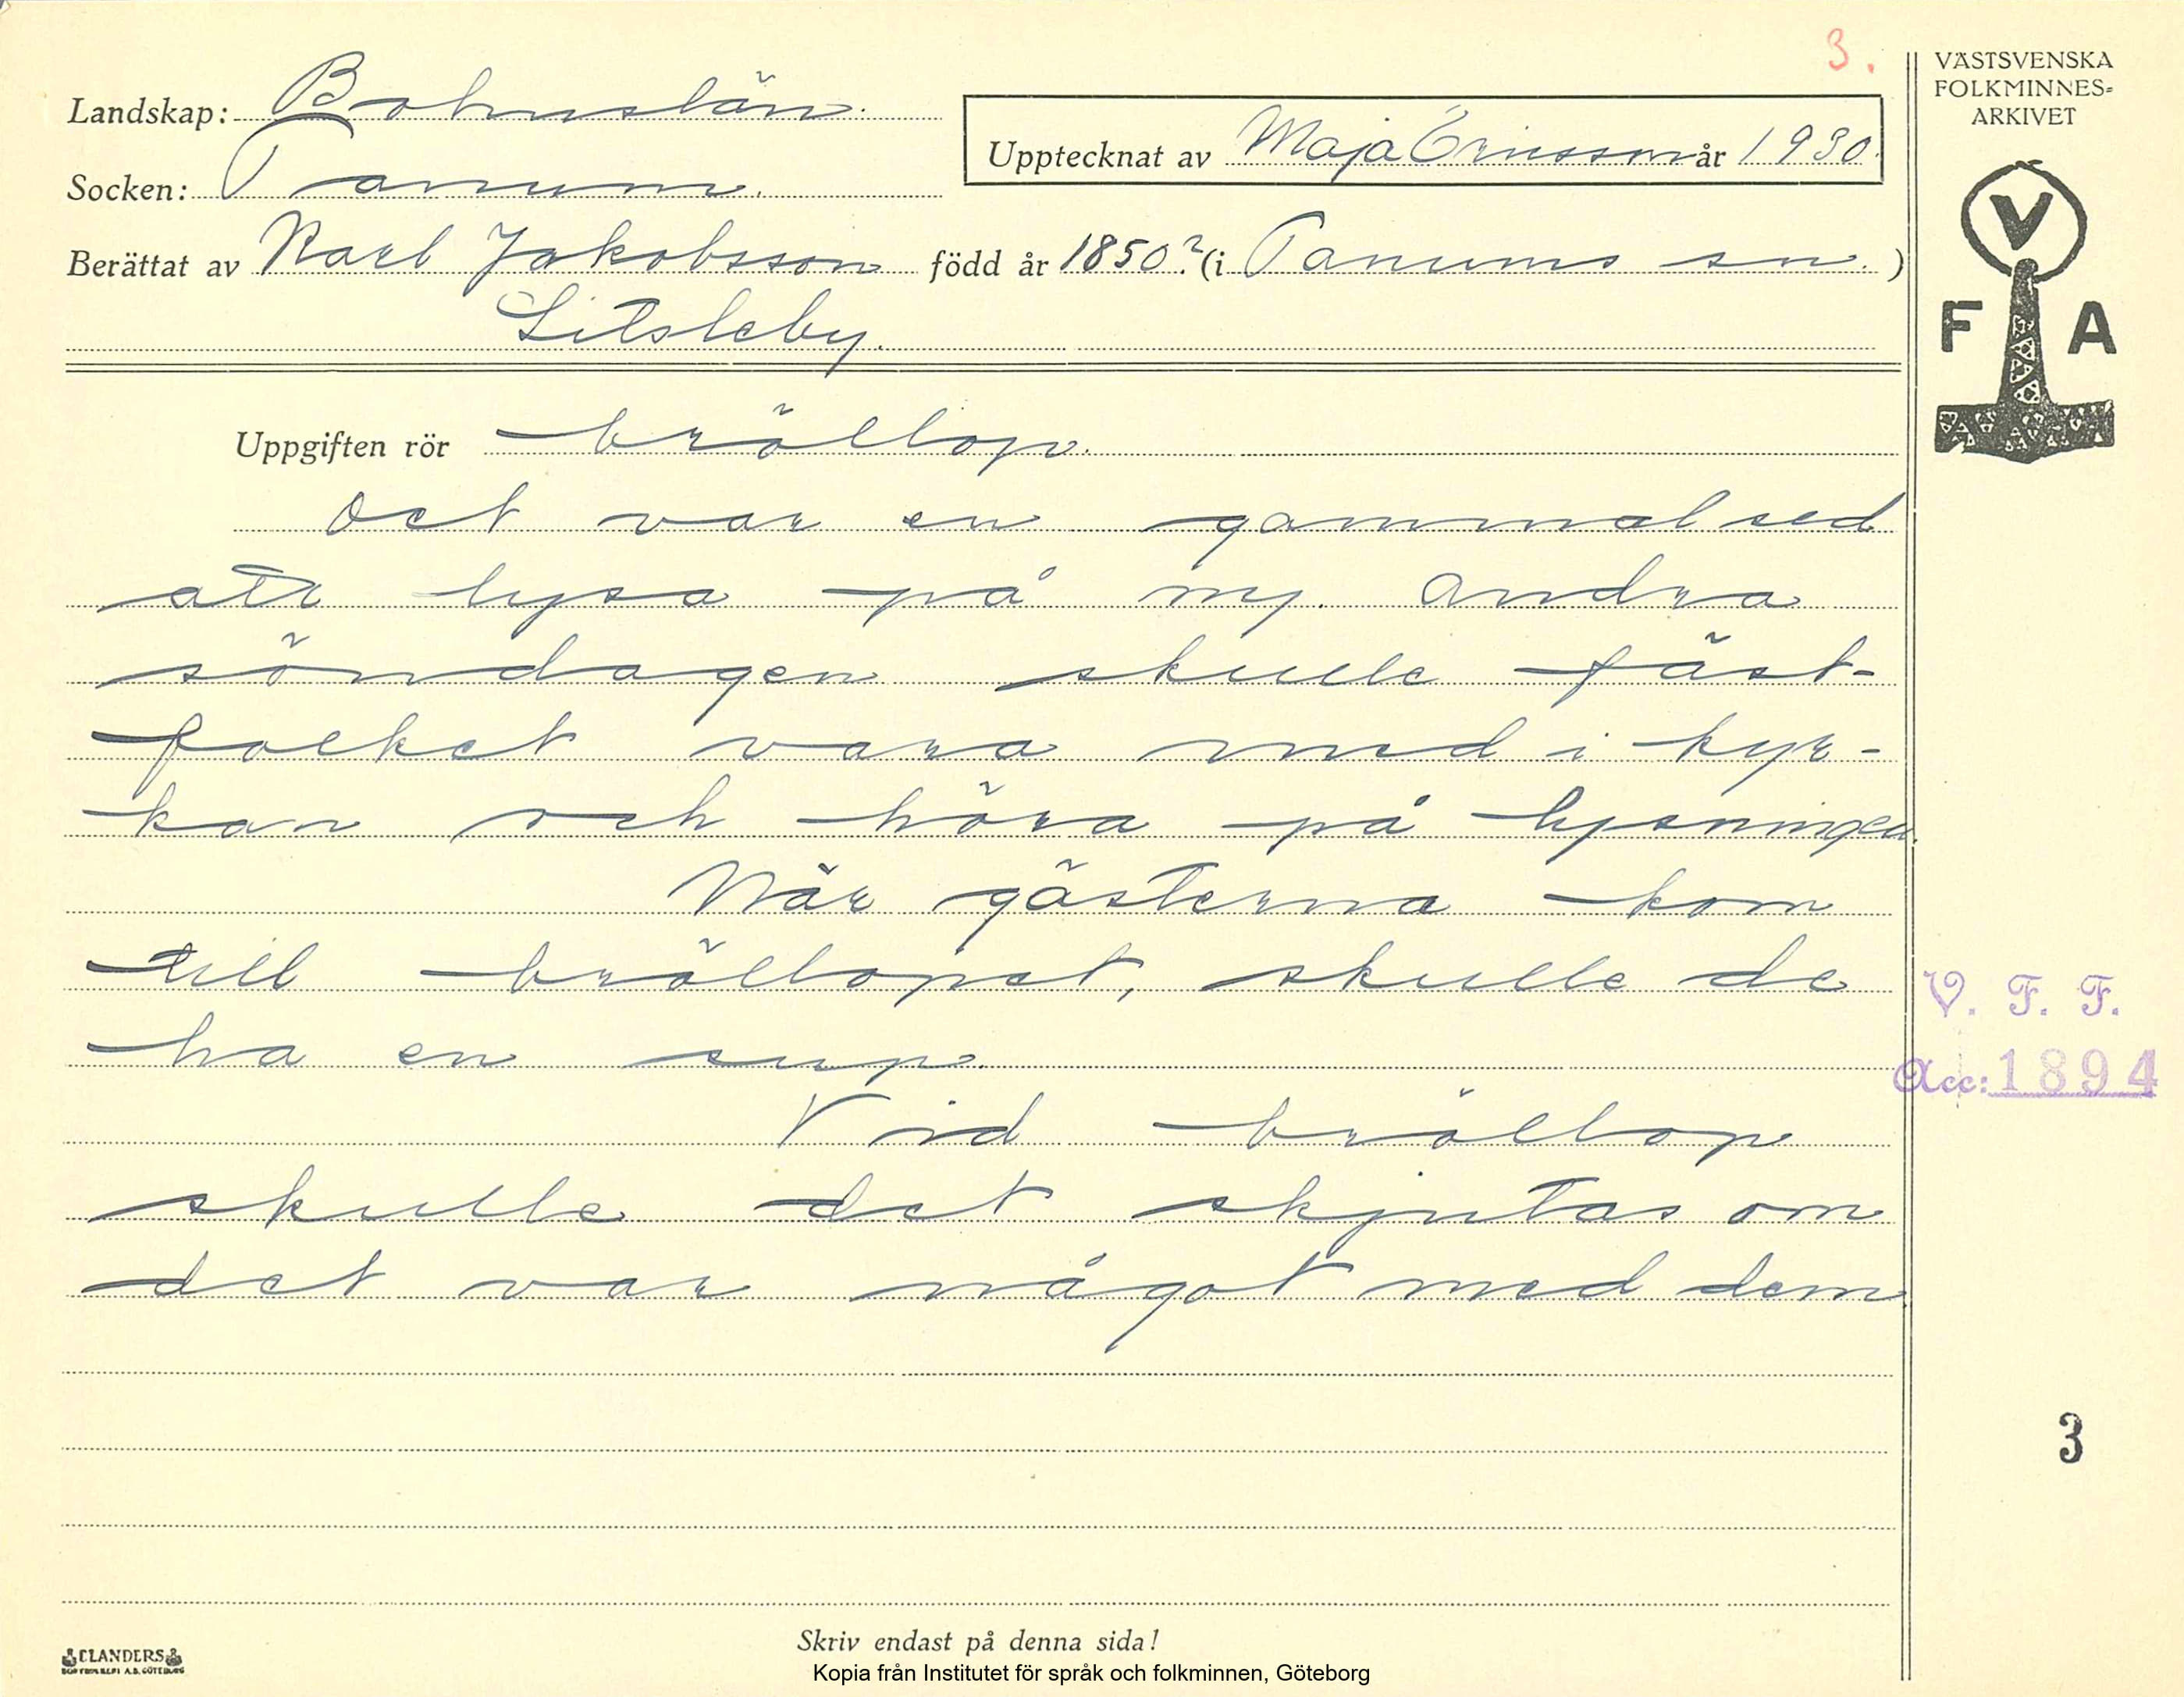 3.
VÄSTSVENSKA
FOLKMINNES-
ARKIVET
Landskap: Bohuslän.
Upptecknat av Maja Ericsson år 1930.
Socken: Tanum.
Berättat av Karl Jakobsson född år 1850? (i Tanums sn.)
Litsleby.
V
F A
Uppgiften rör bröllop.
Det var en gammal sed
att lysa på ny. Andra
söndagen skulle fäst-
folket vara med i kyr-
kan och höra på lysningen.
När gästerna kom
till bröllopet, skulle de
ha en sup.
V. F. F.
Acc: 1894
Vid bröllop
skulle det skjutas om
det var något med dem
3
Skriv endast på denna sida!
CLANDERS
Kopia från Institutet för språk och folkminnen, Göteborg